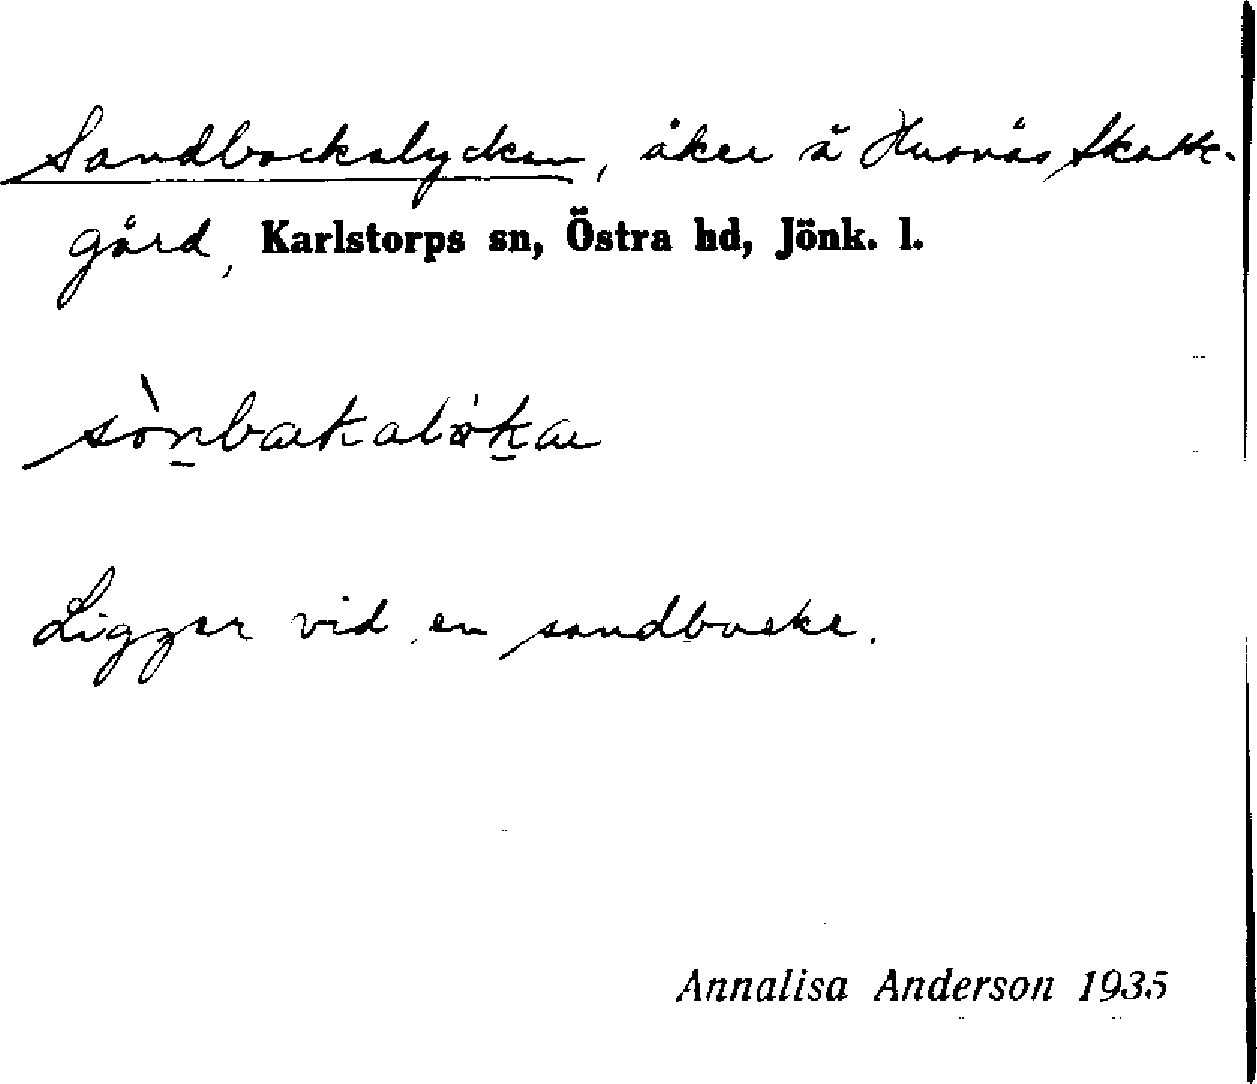 Sandbackalyckan, åker å Husnäs Skatte-
gård, Karlstorps sn, Östra hd, Jönk. l.
Ligger vid en sandbacke.
Annalisa Anderson 1935